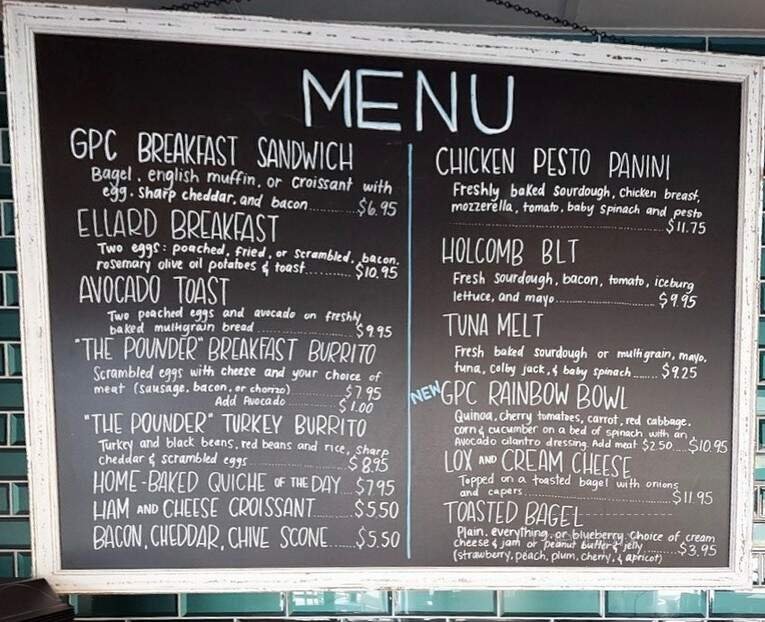 MENU
GPC BREAKFAST SANDWICH
Bagel, english muffin, or croissant with
egg, sharp cheddar, and bacon..........$6.95
ELLARD BREAKFAST
Two eggs: poached, fried, or scrambled, bacon,
rosemary olive oil potatoes & toast.........$10.95
AVOCADO TOAST
Two poached eggs and avocado on freshly
baked multigrain bread....................$9.95
"THE POUNDER" BREAKFAST BURRITO
Scrambled eggs with cheese and your choice of
meat (sausage, bacon, or chorizo)..........$7.95
Add Avocado..............$1.00
"THE POUNDER" TURKEY BURRITO
Turkey and black beans, red beans and rice, sharp
cheddar & scrambled eggs....................$8.95
HOME-BAKED QUICHE OF THE DAY...$7.95
HAM AND CHEESE CROISSANT......$5.50
BACON, CHEDDAR, CHIVE SCONE.....$5.50
CHICKEN PESTO PANINI
Freshly baked sourdough, chicken breast,
mozzerella, tomato, baby spinach and pesto
..........................................$11.75
HOLCOMB BLT
Fresh sourdough, bacon, tomato, iceburg
lettuce, and mayo....................$9.95
TUNA MELT
Fresh baked sourdough or multigrain, mayo,
tuna, colby jack, & baby spinach......$9.25
NEW GPC RAINBOW BOWL
Quinoa, cherry tomatoes, carrot, red cabbage,
corn & cucumber on a bed of spinach with an
Avocado cilantro dressing. Add meat $2.50....$10.95
LOX AND CREAM CHEESE
Topped on a toasted bagel with onions
and capers..............................$11.95
TOASTED BAGEL
Plain, everything, or blueberry. Choice of cream
cheese & jam or peanut butter & jelly.........$3.95
(strawberry, peach, plum, cherry, & apricot)